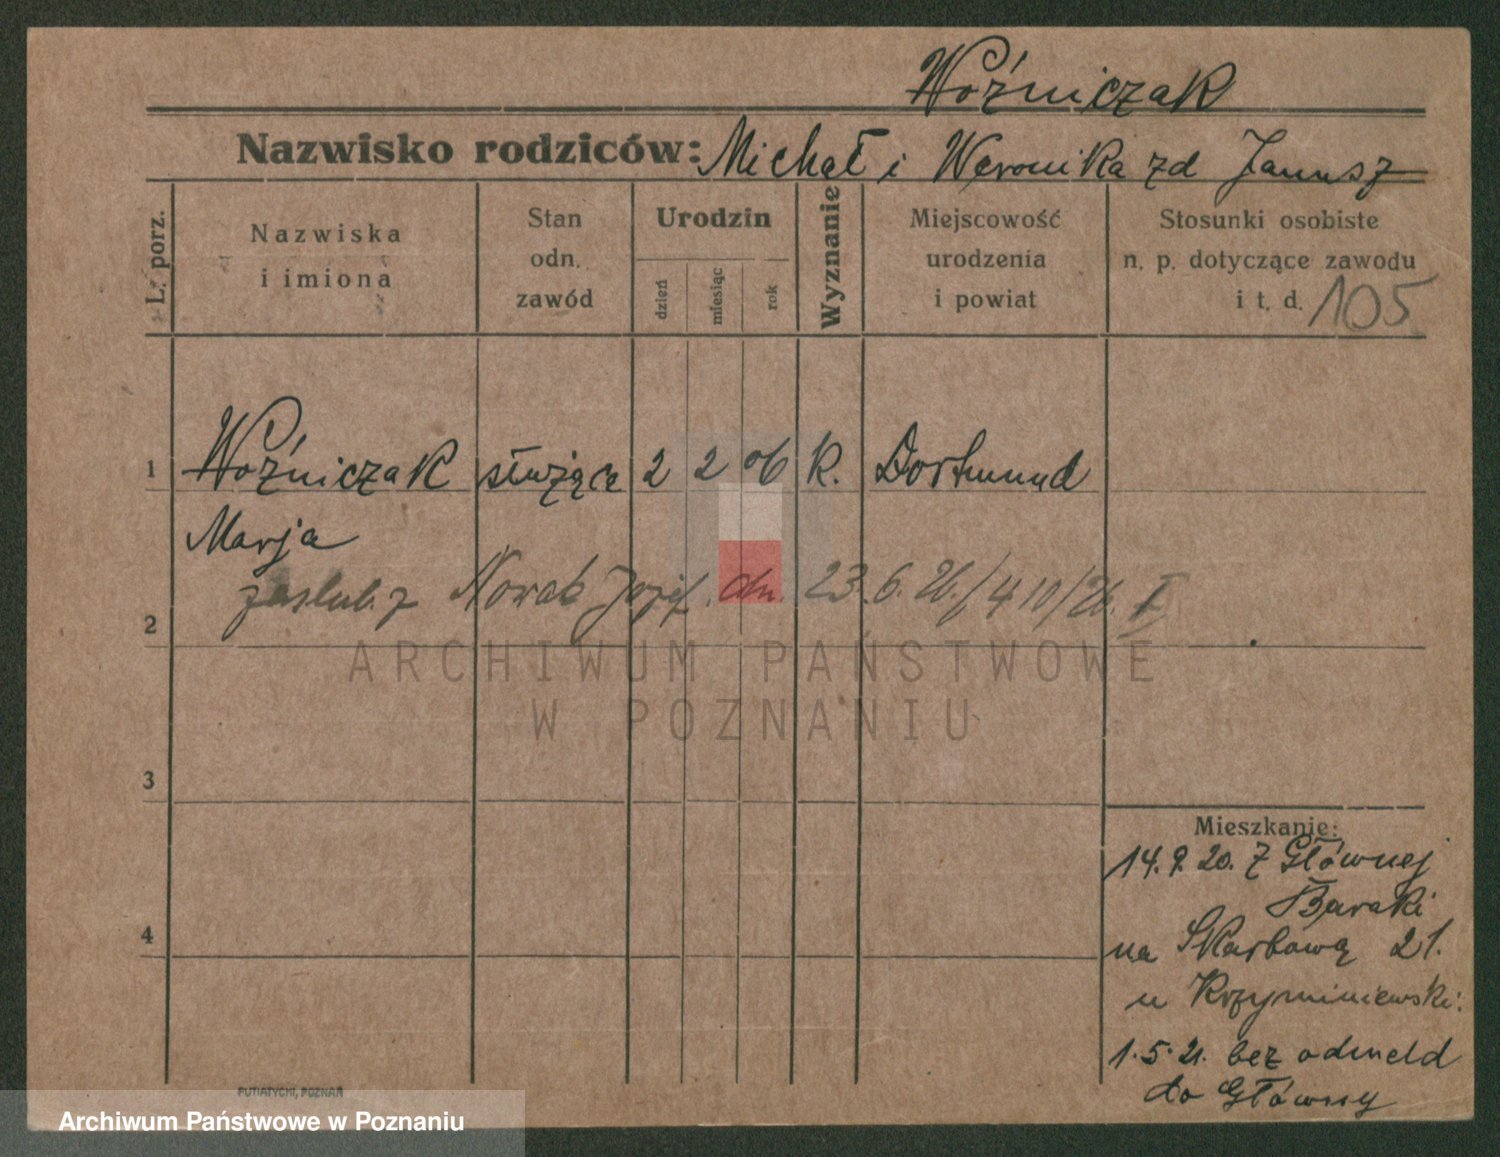 Woźniczak
Nazwisko rodziców: Michał i Weronika zd Janusz
L. porz.
Nazwiska
i imiona
Stan
odn.
zawód
Urodzin
dzień
miesiąc
rok
Wyznanie
Miejscowość
urodzenia
i powiat
Stosunki osobiste
n. p. dotyczące zawodu
i t. d. 105
1 Woźniczak służąca 2 2 06 K. Dortmund
Marja
zaślub. z Nowak Józef. dn. 23.6.26./410/26. I
2
ARCHIWUM PAŃSTWOWE
W POZNANIU
3
Mieszkanie:
14.9.20. Z Głównej
Baraki
4
na Skarbową 21.
u Krzyminiewski:
1.5.21. bez odmeld
do Główny
PUTIATYCKI, POZNAŃ
Archiwum Państwowe w Poznaniu